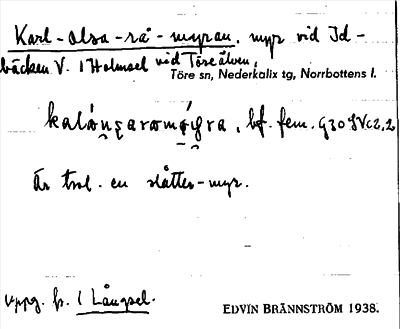 Karl-Olsa-rå-myran, myr vid Id-
bäcken V. i Holmsel vid Töreälven.
Töre sn, Nederkalix tg, Norrbottens l.
bf. fem.
Är trol. en slåtter-myr.
Uppg. fr. i Långsel.
EDVIN BRÄNNSTRÖM 1938.